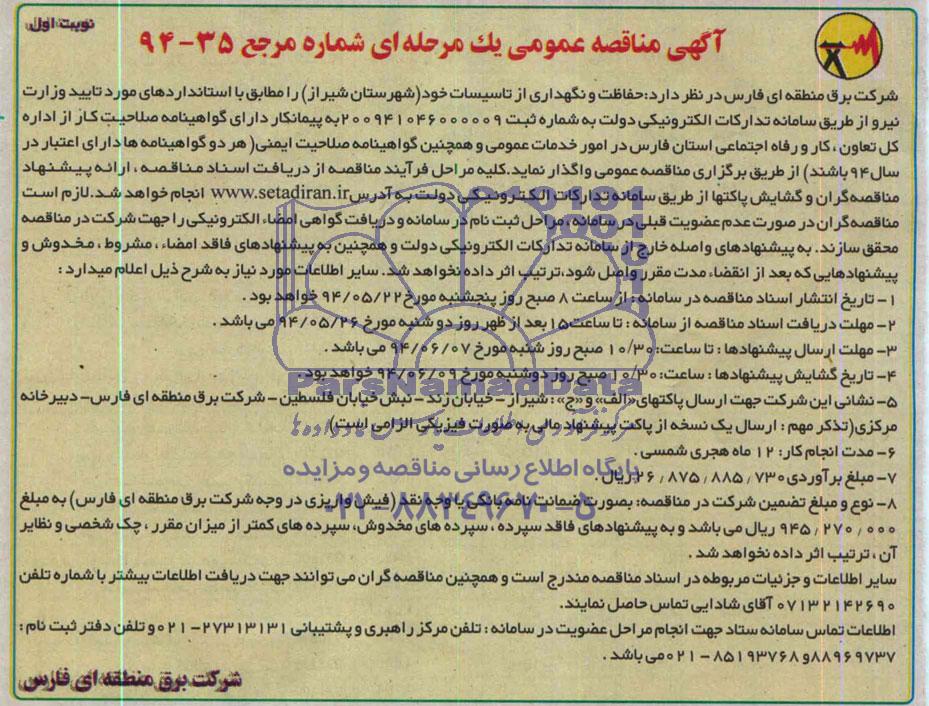 نوبت اول
آگهی مناقصه عمومی یك مرحله ای شماره مرجع ۳۵-۹۴
شرکت برق منطقه ای فارس در نظر دارد:حفاظت و نگهداری از تاسیسات خود(شهرستان شیراز) را مطابق با استانداردهای مورد تایید وزارت
نیرو از طریق سامانه تدارکات الکترونیکی دولت به شماره ثبت ۲۰۰۹۴۱۰۴۶۰۰۰۰۰۹به پیمانکار دارای گواهینامه صلاحیت کار از اداره
کل تعاون ، کار و رفاه اجتماعی استان فارس در امور خدمات عمومی و همچنین گواهینامه صلاحیت ایمنی( هر دو گواهینامه ها دارای اعتبار در
سال۹۴ باشند) از طریق برگزاری مناقصه عمومی واگذار نماید.کلیه مراحل فرآیند مناقصه از دریافت اسناد مناقصه ، ارائه پیشنهاد
مناقصه‌گران و گشایش پاکتها از طریق سامانه تدارکات الکترونیکی دولت به آدرسwww.setadiran.ir انجام خواهد شد.لازم است
مناقصه‌گران در صورت عدم عضویت قبلی در سامانه ، مراحل ثبت نام در سامانه و دریافت گواهی امضاء الکترونیکی را جهت شرکت در مناقصه
محقق سازند. به پیشنهادهای واصله خارج از سامانه تدارکات الکترونیکی دولت و همچنین به پیشنهادهای فاقد امضاء ، مشروط ، مخدوش و
پیشنهادهایی که بعد از انقضاء مدت مقرر واصل شود،ترتیب اثر داده نخواهد شد. سایر اطلاعات مورد نیاز به شرح ذیل اعلام میدارد :
۱- تاریخ انتشار اسناد مناقصه در سامانه : از ساعت ۸ صبح روز پنجشنبه مورخ ۹۴/۰۵/۲۲ خواهد بود .
۲- مهلت دریافت اسناد مناقصه از سامانه : تا ساعت۱۵ بعد از ظهر روز دو شنبه مورخ ۹۴/۰۵/۲۶ می باشد .
۳- مهلت ارسال پیشنهادها : تا ساعت: ۱۰/۳۰ صبح روز شنبه مورخ ۹۴/۰۶/۰۷ می باشد .
۴- تاریخ گشایش پیشنهادها : ساعت: ۱۰/۳۰ صبح روز دوشنبه مورخ ۹۴/۰۶/۰۹ خواهد بود .
۵- نشانی این شرکت جهت ارسال پاکتهای«الف» و «ج» : شیراز - خیابان زند - نبش خیابان فلسطین - شرکت برق منطقه ای فارس- دبیرخانه
مرکزی(تذکر مهم : ارسال یک نسخه از پاکت پیشنهاد مالی به صورت فیزیکی الزامی است)
۶- مدت انجام کار: ۱۲ ماه هجری شمسی .
۷- مبلغ برآوردی ۲۶٫۸۷۵٫۸۸۵٫۷۳۰ ریال .
۸- نوع و مبلغ تضمین شرکت در مناقصه: بصورت ضمانت نامه بانکی یا وجه نقد (فیش واریزی در وجه شرکت برق منطقه ای فارس) به مبلغ
۹۴۵٫۲۷۰٫۰۰۰ ریال می باشد و به پیشنهادهای فاقد سپرده ، سپرده های مخدوش، سپرده های کمتر از میزان مقرر ، چک شخصی و نظایر
آن ، ترتیب اثر داده نخواهد شد .
سایر اطلاعات و جزئیات مربوطه در اسناد مناقصه مندرج است و همچنین مناقصه گران می توانند جهت دریافت اطلاعات بیشتر با شماره تلفن
۰۷۱۳۲۱۴۲۶۹۰ آقای شادایی تماس حاصل نمایند.
اطلاعات تماس سامانه ستاد جهت انجام مراحل عضویت در سامانه : تلفن مرکز راهبری و پشتیبانی ۲۷۳۱۳۱۳۱-۰۲۱ و تلفن دفتر ثبت نام :
۸۸۹۶۹۷۳۷و ۸۵۱۹۳۷۶۸-۰۲۱ می باشد .
شرکت برق منطقه ای فارس
ParsNamadData
پایگاه اطلاع رسانی مناقصه و مزایده
۰۲۱-۸۸۳۴۹۶۷۰-۵